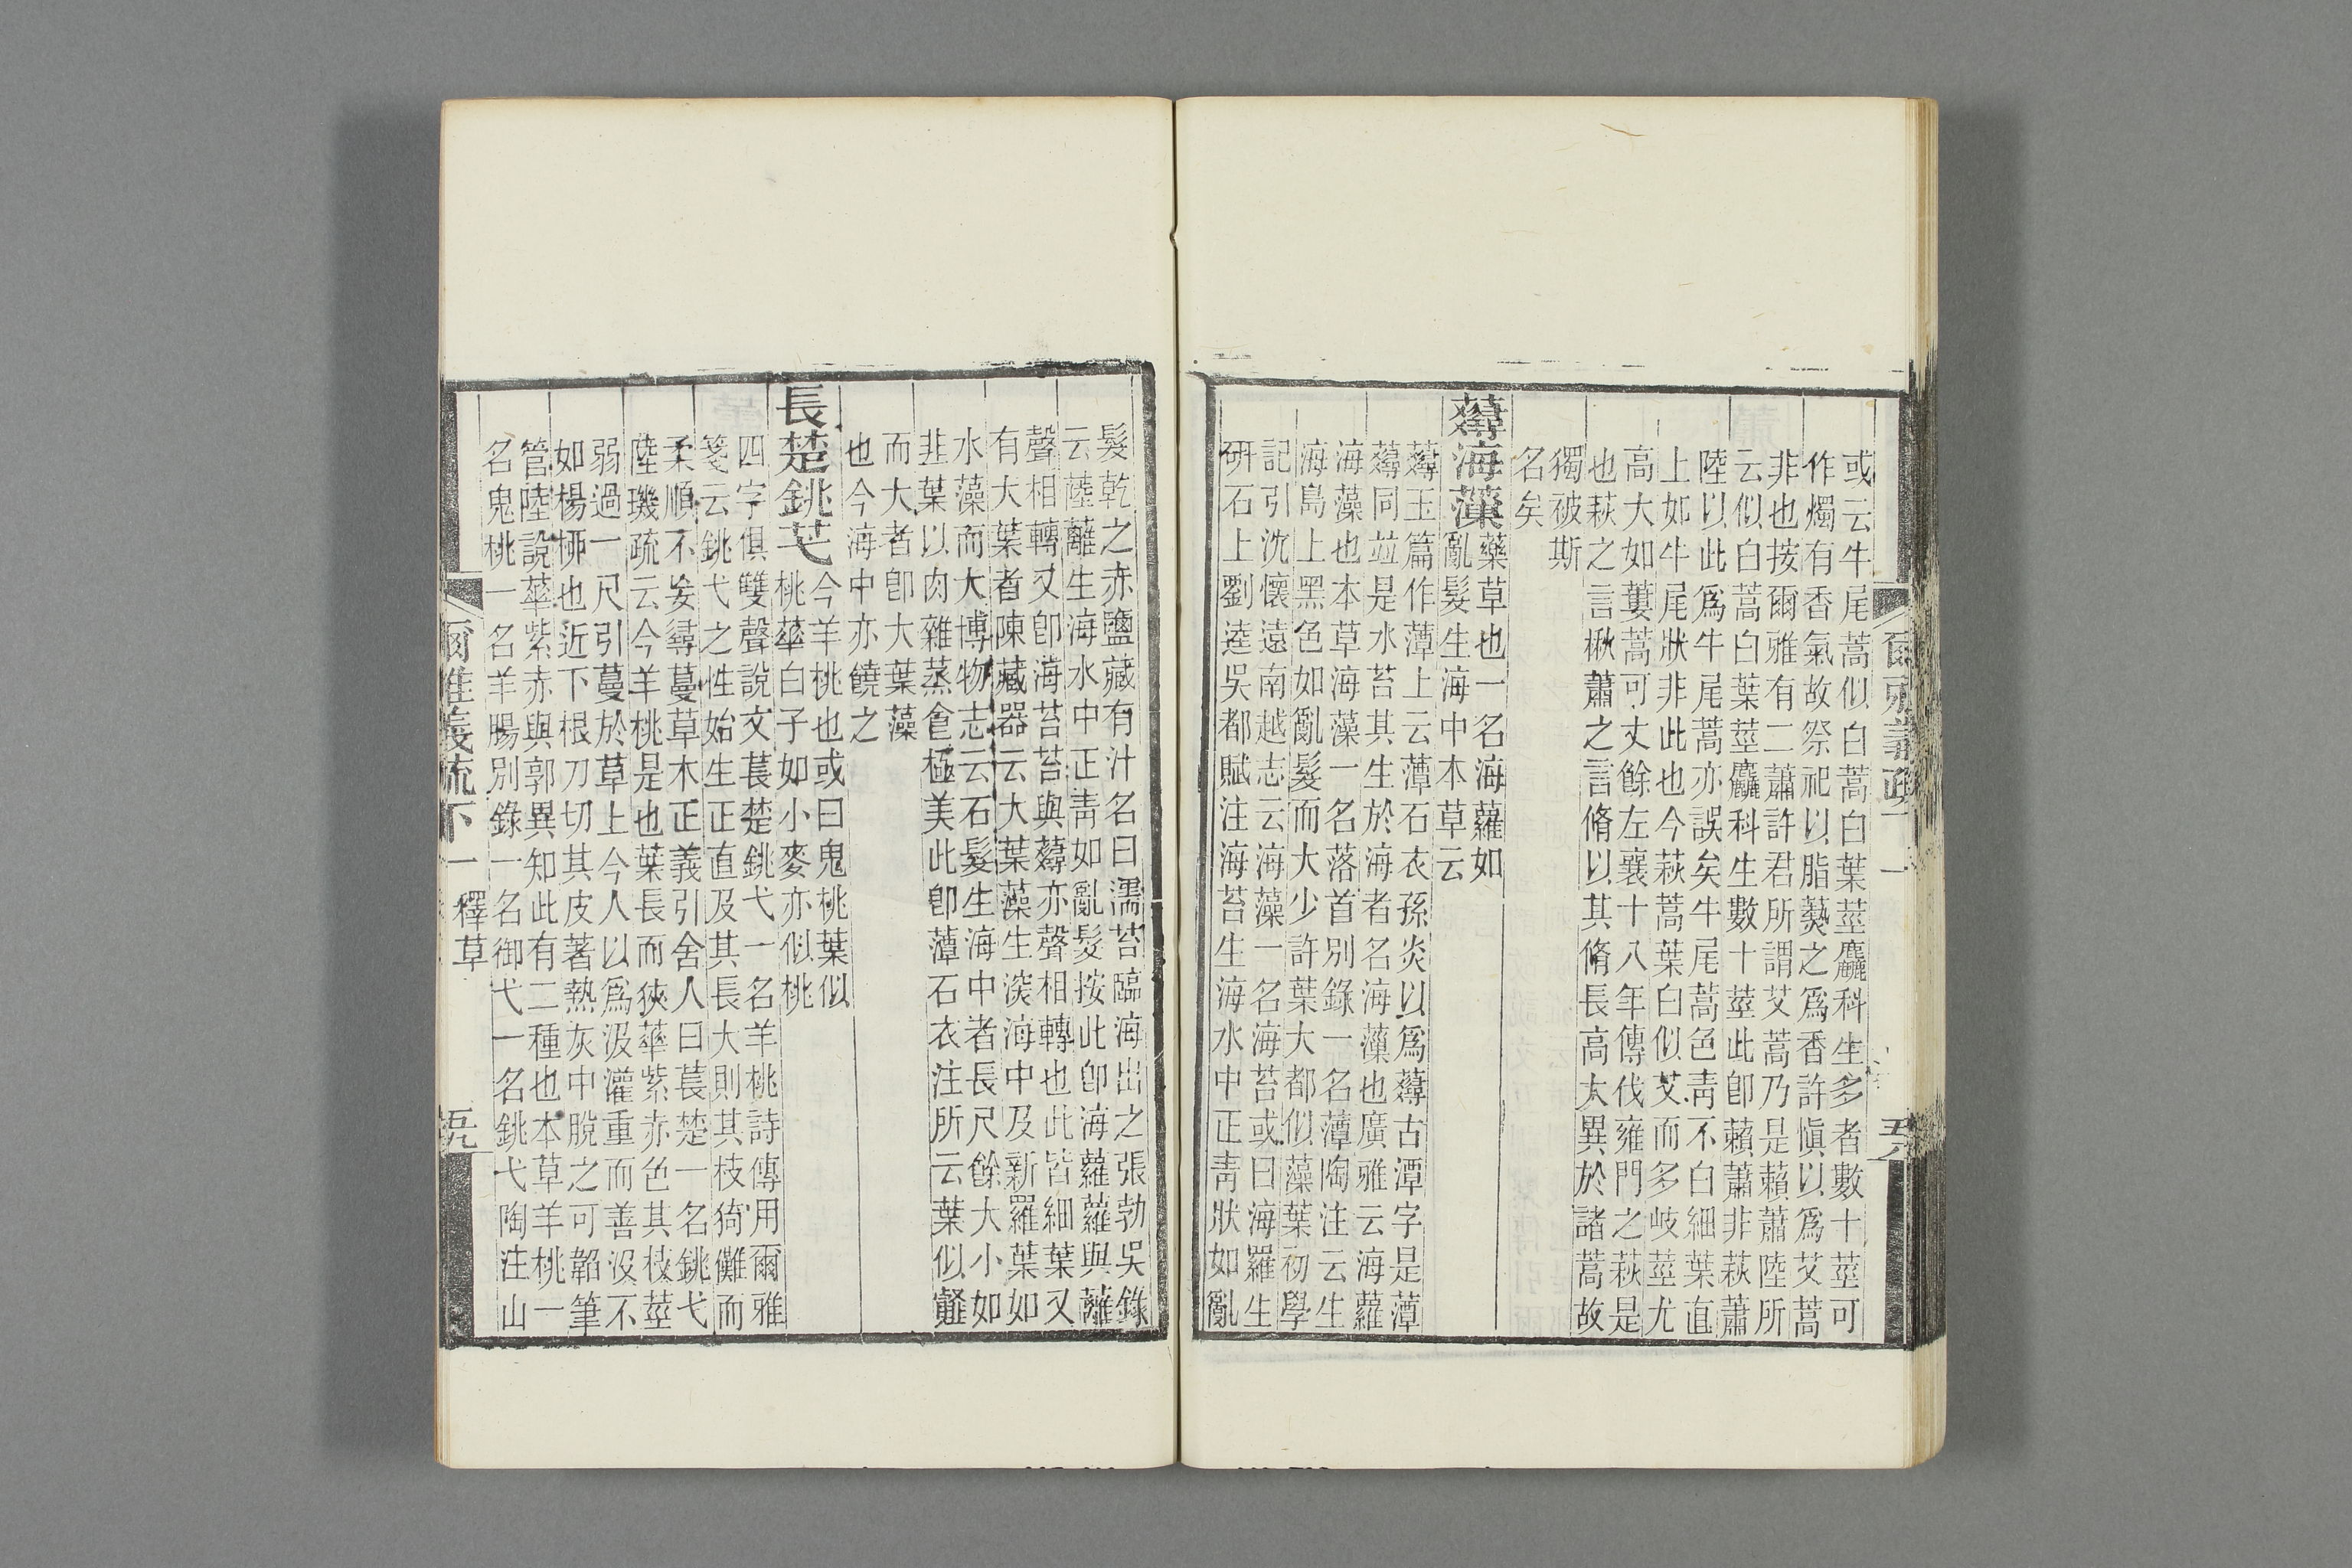 或云牛尾蒿似白蒿白葉莖麤科生多者數十莖可
作燭有香氣故祭祀以脂爇之爲香許愼以爲艾蒿
非也按爾雅有二蕭許君所謂艾蒿乃是藾蕭陸所
云似白蒿白葉莖麤科生數十莖此卽藾蕭非萩蕭
陸以此爲牛尾蒿亦誤矣牛尾蒿色靑不白細葉直
上如牛尾狀非此也今萩蒿葉白似艾而多岐莖尤
高大如蔞蒿可丈餘左襄十八年傳伐雍門之萩是
也萩之言楸蕭之言脩以其脩長高大異於諸蒿故
獨被斯
名矣
薚海藻
藥草也一名海蘿如
亂髮生海中本草云
薚玉篇作藫上云藫石衣孫炎以爲薚古潭字是藫
薚同竝是水苔其生於海者名海藻也廣雅云海蘿
海藻也本草海藻一名落首別錄一名藫陶注云生
海島上黑色如亂髮而大少許葉大都似藻葉初學
記引沈懷遠南越志云海藻一名海苔或曰海羅生
研石上劉逵吳都賦注海苔生海水中正靑狀如亂
髮乾之赤鹽藏有汁名曰濡苔臨海出之張勃吳錄
云薩蘺生海水中正靑如亂髮按此卽海蘿蘿與蘺
聲相轉又卽海苔苔與薚亦聲相轉也此皆細葉又
有大葉者陳藏器云大葉藻生深海中及新羅葉如
水藻而大博物志云石髮生海中者長尺餘大小如
韭葉以肉雜蒸食極美此卽藫石衣注所云葉似䪥
而大者卽大葉藻
也今海中亦饒之
長楚銚芅
今羊桃也或曰鬼桃葉似
桃華白子如小麥亦似桃
四字俱雙聲說文萇楚銚弋一名羊桃詩傳用爾雅
箋云銚弋之性始生正直及其長大則其枝猗儺而
柔順不妄尋蔓草木正義引舍人曰萇楚一名銚弋
陸璣疏云今羊桃是也葉長而狹華紫赤色其枝莖
弱過一尺引蔓於草上今人以爲汲灌重而善沒不
如楊柳也近下根刀切其皮著熱灰中脫之可韜筆
管陸說華紫赤與郭異知此有二種也本草羊桃一
名鬼桃一名羊腸別錄一名御弋一名銚弋陶注山
爾雅義疏下一 釋草